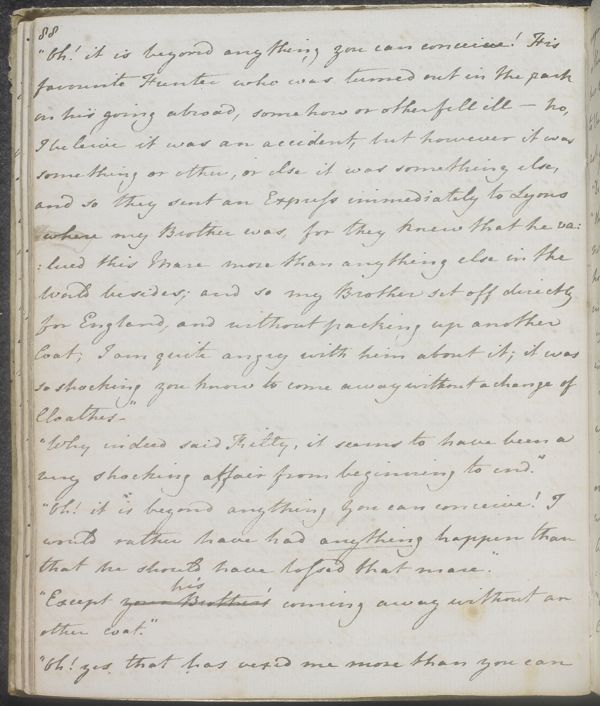 88
"Oh! it is beyond anything you can conceive! His
favourite Hunter who was turned out in the park
on his going abroad, somehow or other fell ill — no,
I beleive it was an accident, but however it was
something or other, or else it was something else,
and so they sent an Express immediately to Lyons
where my Brother was, for they knew that he va:
:lued this Mare more than anything else in the
World besides; and so my Brother set off directly
for England, and without packing up another
Coat; I am quite angry with him about it; it was
so shocking you know to come away without a change of
Cloathes—"
"Why indeed said Kitty, it seems to have been a
very shocking affair from beginning to end."
"Oh! it is beyond anything You can conceive! I
would rather have had anything happen than
that he should have lossed that mare."
his
"Except your Brother's coming away without an
other coat."
"Oh! yes, that has vexed me more than you can